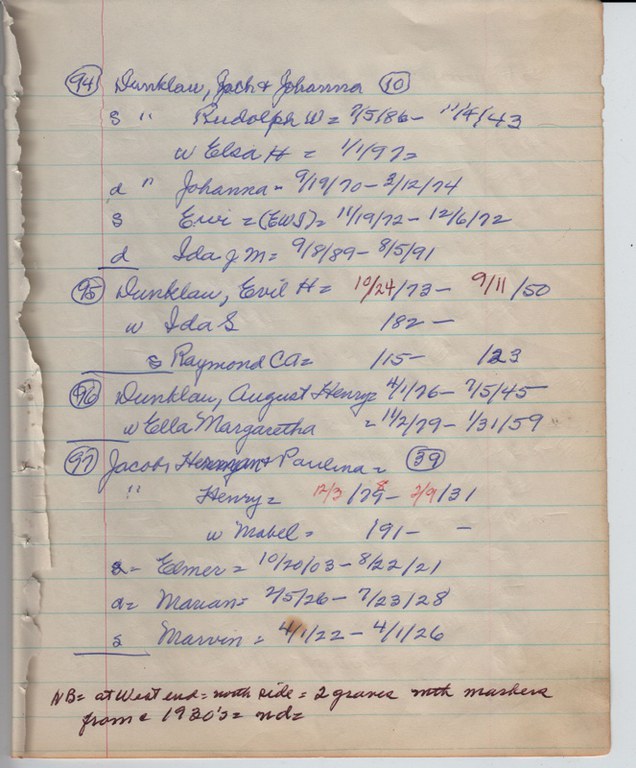 (94) Dunklau, Joch & Johanna (10)
s " Rudolph W = 7/5/86 - 11/4/43
w Elsa H = 1/1/97 =
d " Johanna - 9/19/70 - 3/12/74
s Ewi = (EWS) = 11/19/72 - 12/6/72
d Ida J M = 9/8/89 - 8/5/91
(95) Dunklau, Evil H = 10/24/73 - 9/11/50
w Ida S /82 -
s Raymond CA = /15 - /23
(96) Dunklau, August Henry = 4/1/76 - 7/5/45
w Ella Margaretha = 11/2/79 - 1/31/59
(97) Jacobs, Herman & Paulina = (39)
" Henry = 12/3/78 - 2/9/31
w Mabel = /91 - -
s = Elmer = 10/20/03 - 8/22/21
d = Marian = 2/5/26 - 7/23/28
s Marvin = 4/1/22 - 4/1/26
NB = at West end = north side = 2 graves with markers
from 1920's = nd =